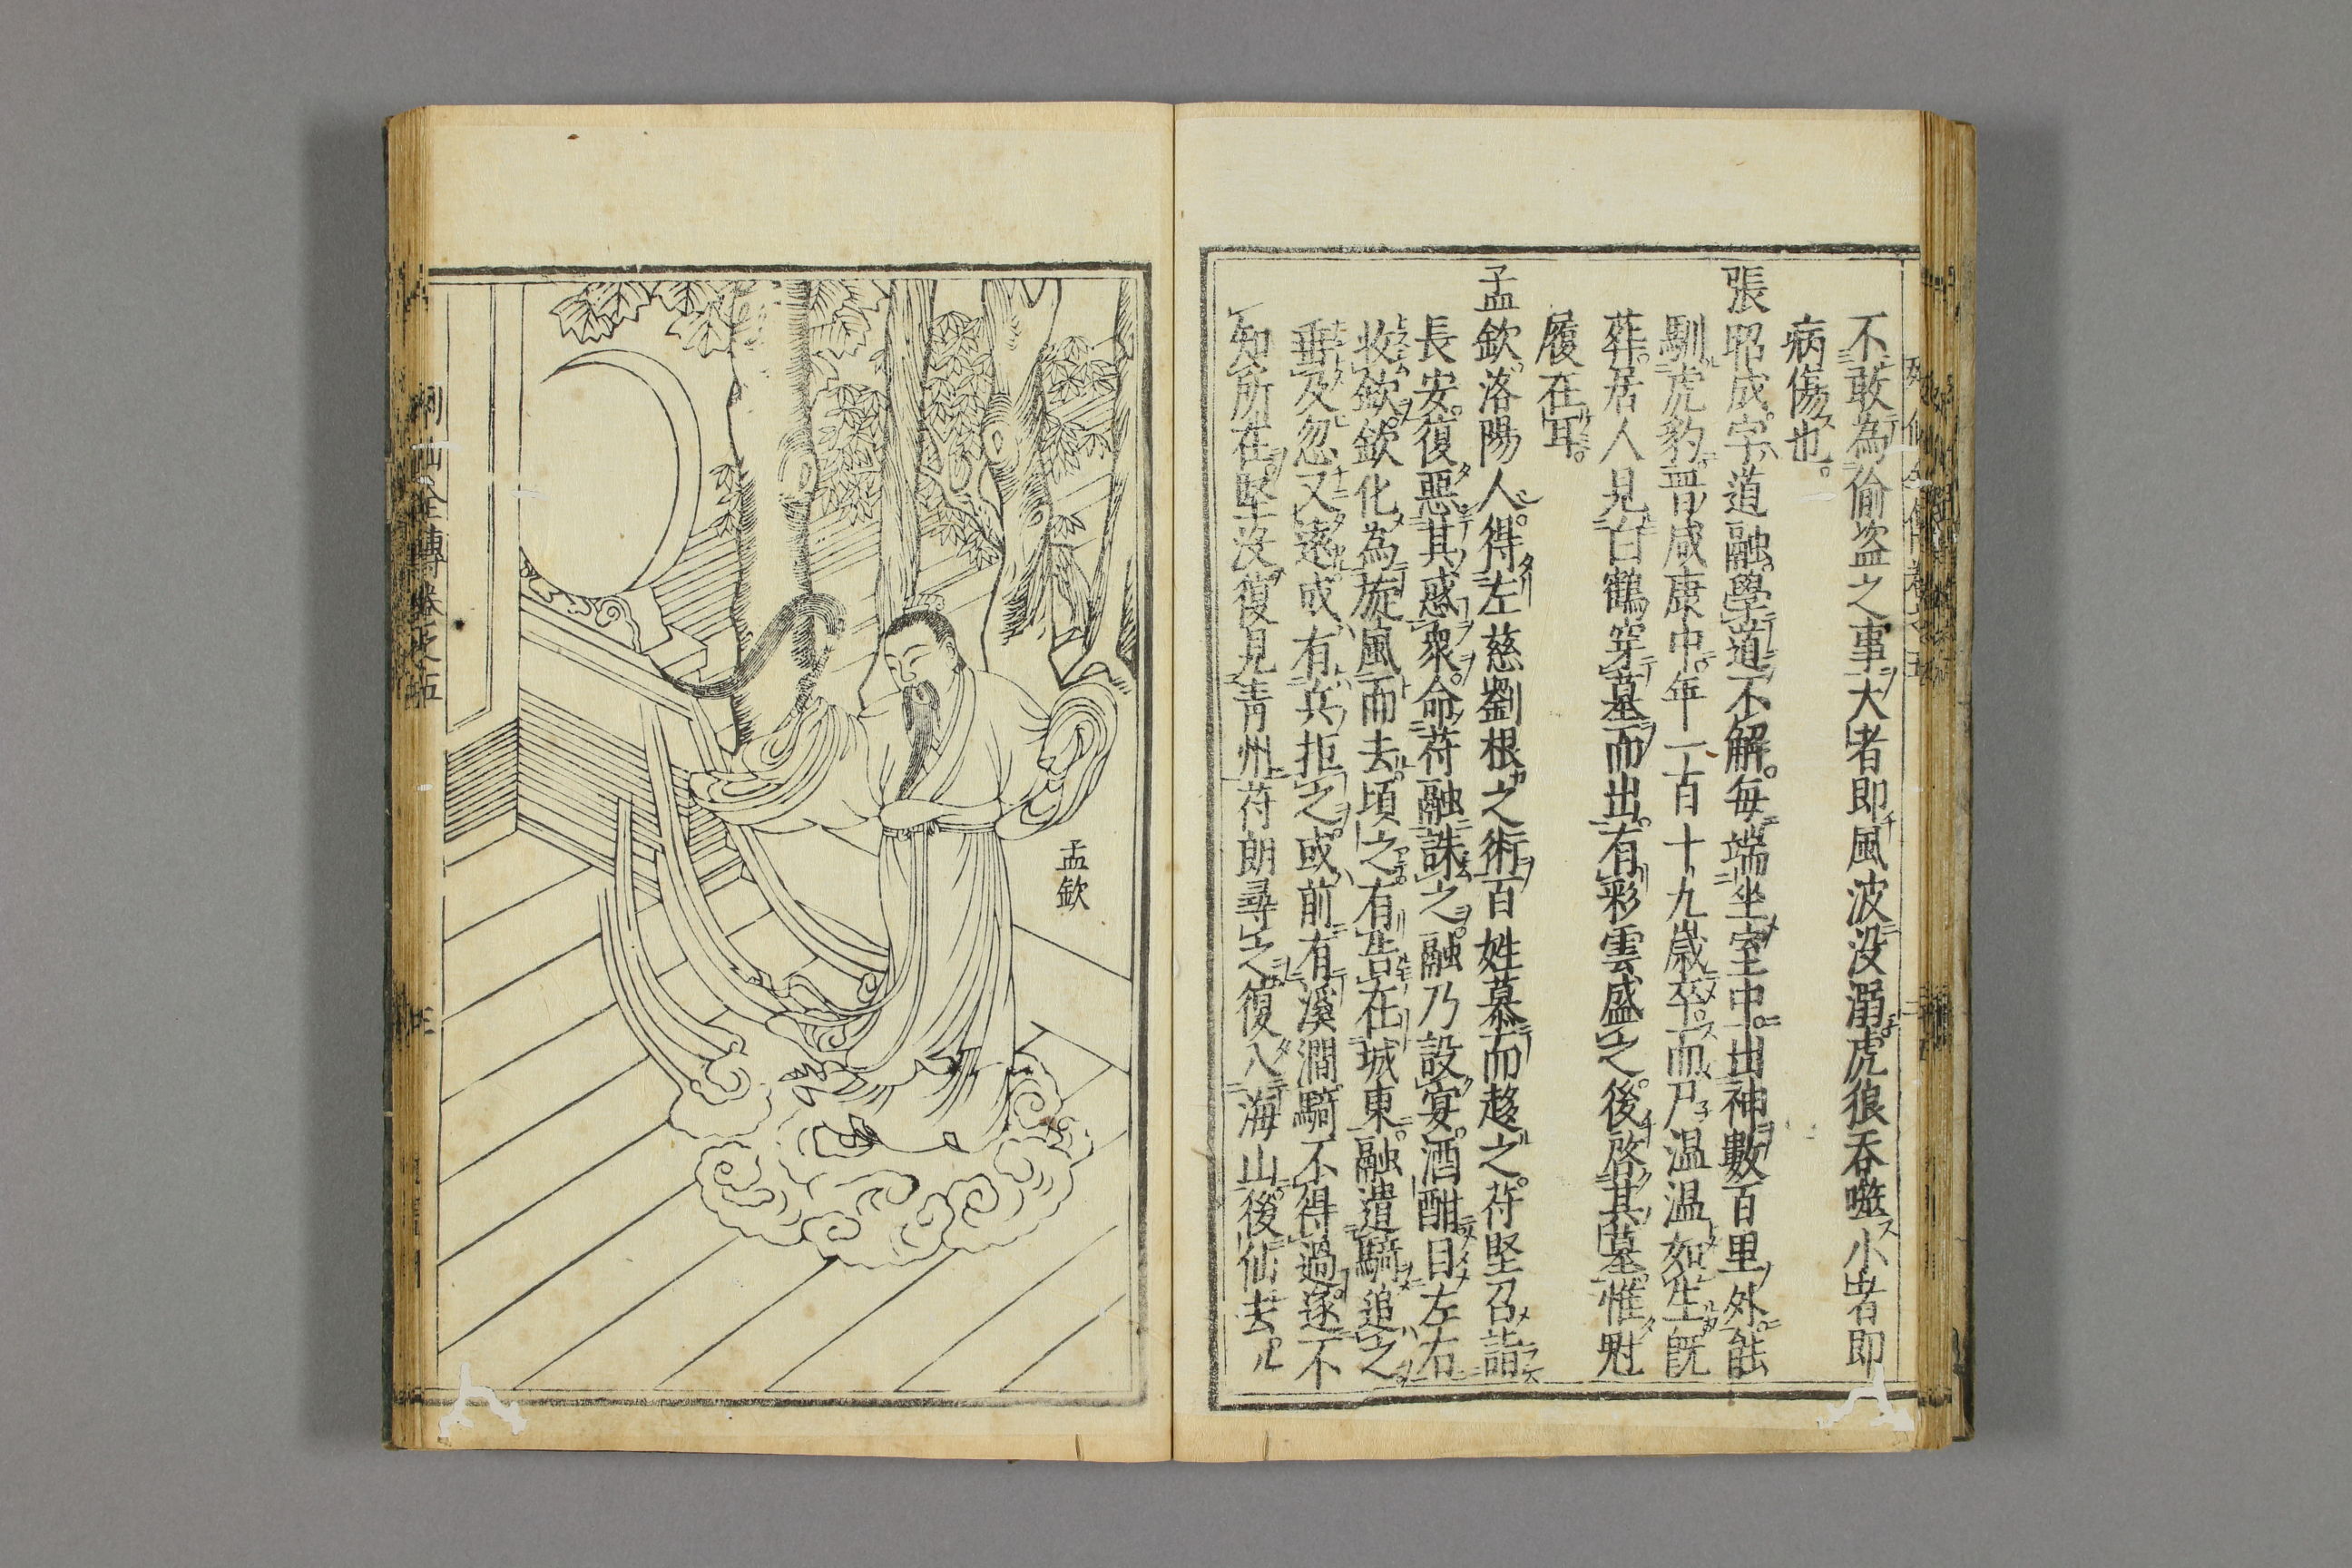 不敢為偷盗之事大者即風波没溺虎狼吞噬小者即
病傷也。
張昭成字道融。學道不解。毎端坐室中。出神數百里外。能
馴虎豹晋咸康中。年一百十九歳卒。而尸温温如生既
葬。居人見白鶴穿墓而出。有彩雲盛之。後啓其墓惟
履在耳。
孟欽。洛陽人。得左慈劉根之術百姓慕而趍之。苻堅召詣
長安。復惡其惑衆。命苻融誅之。融乃設宴。酒酣目左右
收欽。欽化為旋風而去。頃之。有告在城東。融遣騎追之
垂及忽又遠或有兵拒之。或前有溪澗騎不得過。遂不
知所在。堅没復見青州苻朗尋之復入海山。後仙去。
孟欽
列仙全傳卷之五